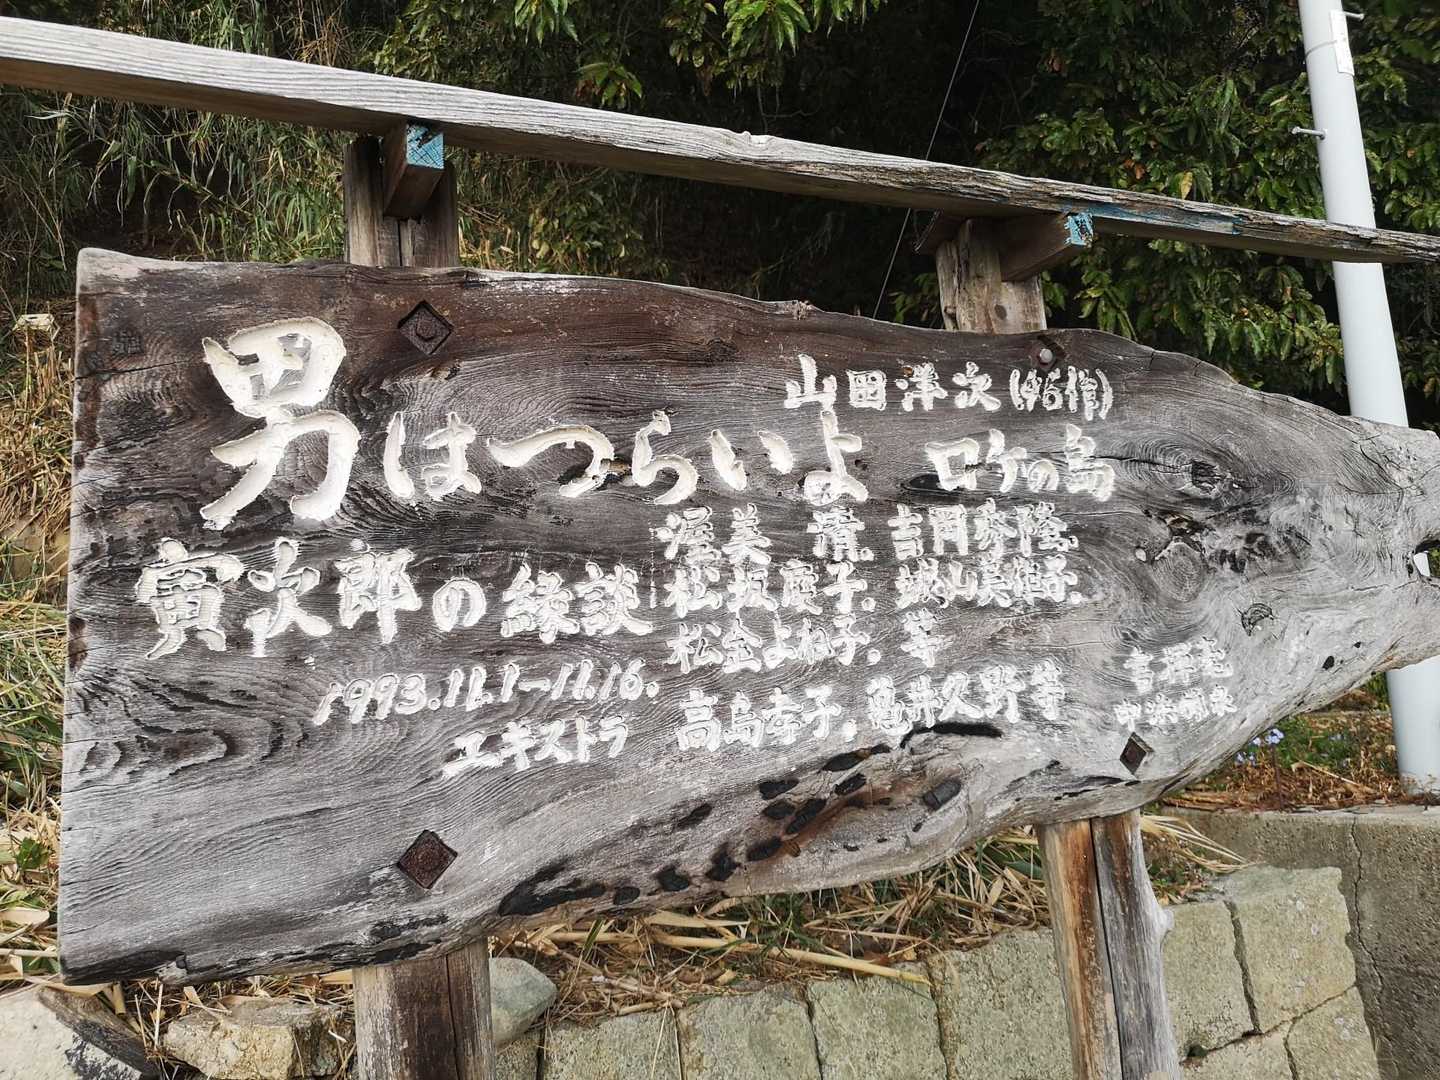 山田洋次(46作)
男はつらいよ ロケの島
寅次郎の縁談
渥美 清. 吉岡秀隆.
松坂慶子. 城山美佳子.
松金よね子. 等
1993.11.1–11.16.
エキストラ 高島孝子. 亀井久野等